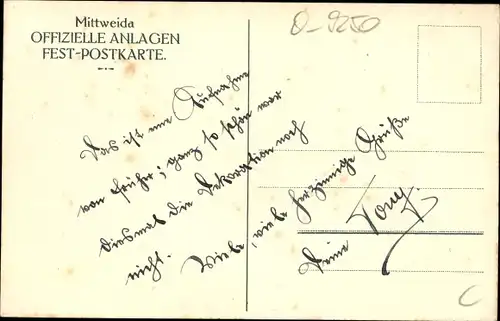 Mittweida
OFFIZIELLE ANLAGEN
FEST-POSTKARTE.
D-9250
Das ist eine Aufnahme
von früher; ganz so schön war
diesmal die Dekoration noch
nicht. Viele, viele herzinnige Grüße
Deine Tony.
C